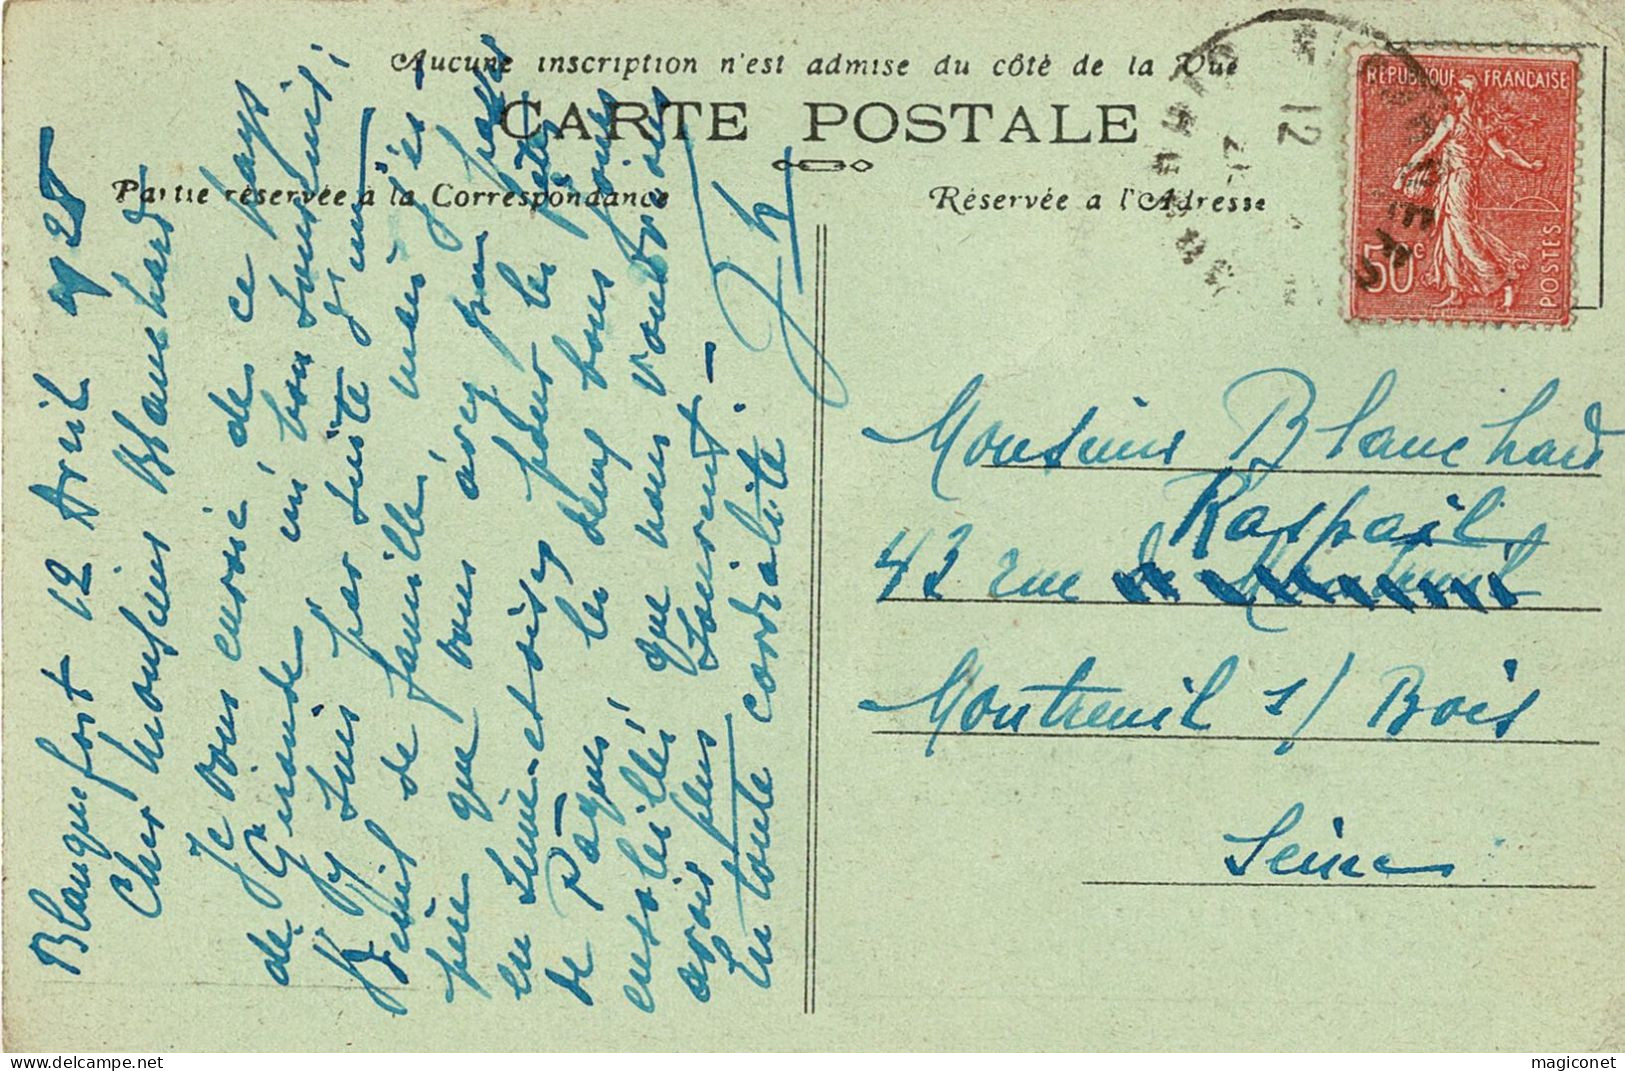 Aucune inscription n'est admise du côté de la Vue
CARTE POSTALE
Partie réservée à la Correspondance
Réservée a l'Adresse
RÉPUBLIQUE FRANÇAISE
50c
POSTES
12
Blanquefort 12 Avril 1928
Cher Monsieur Blanchard
Je vous envoie de ce pays
de Gironde un bon souvenir;
J'y suis par suite d'un
deuil de famille, mais j'es-
père que vous avez pu passer
en Seine-et-Oise pour les fêtes
de Pâques les deux bons jours
ensoleillés que nous voudrions
avoir plus souvent. -
En toute cordialité.
Monsieur Blanchard
Raspail
43 rue de Montreuil
Montreuil s/ Bois
Seine
magiconet